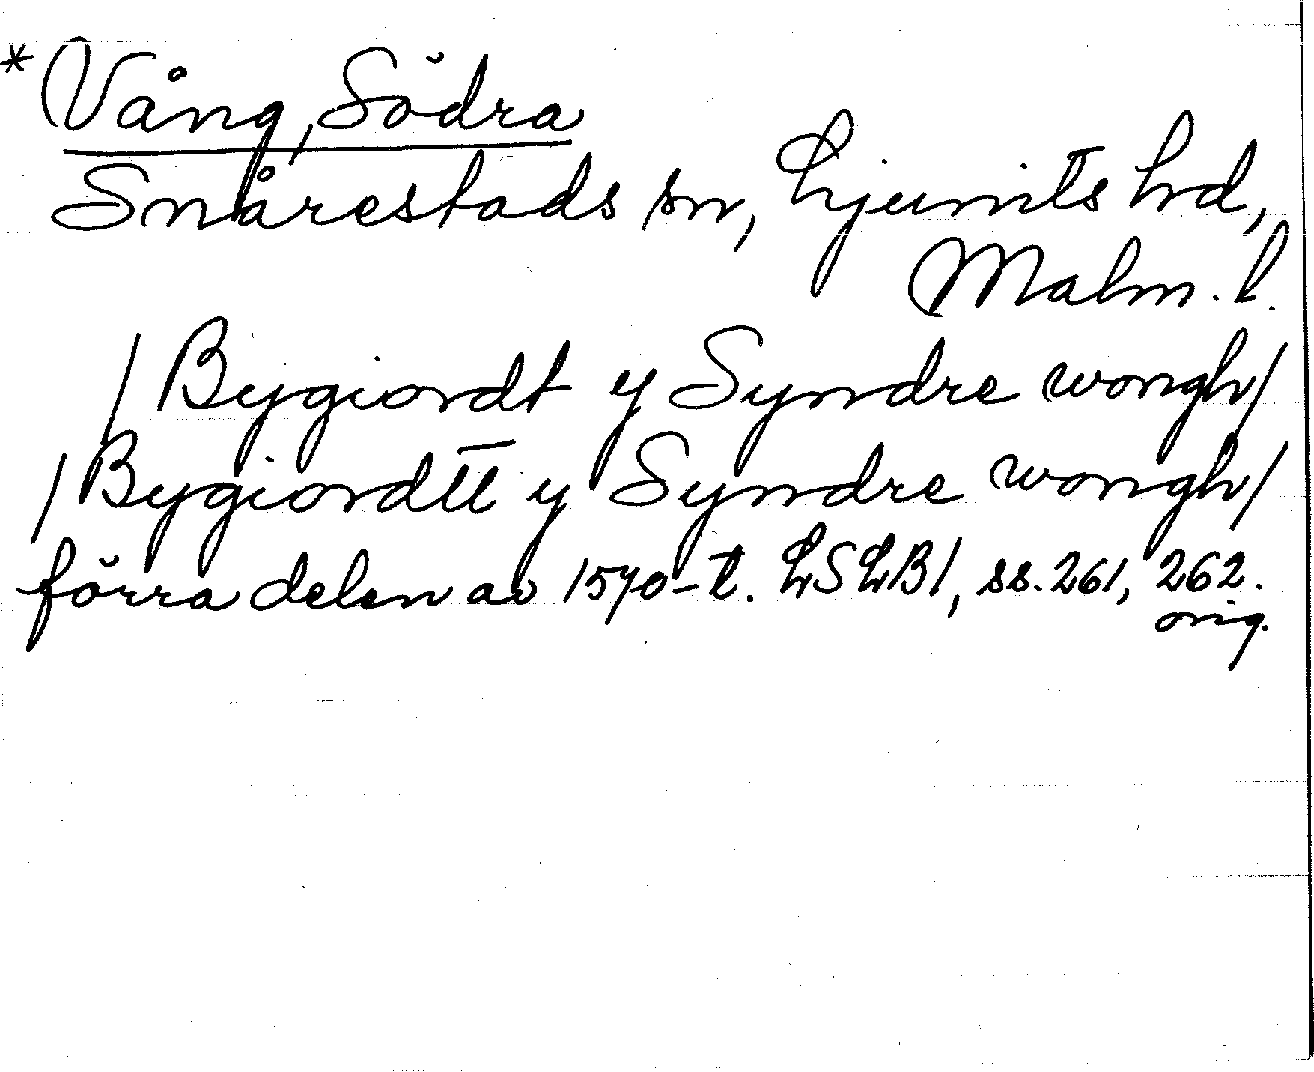 *Vång, Södra
Snårestads sn, Ljunits hd,
Malm. l.
/Bygiordt y Syndre wongh/
/Bygiordtt y Syndre wongh/
förra delen av 1570-t. LSLB1, ss. 261, 262.
orig.